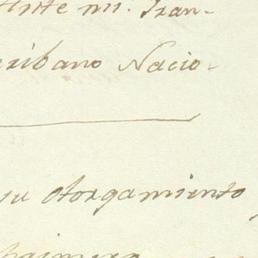 Ante mi. Fran-
cribano Nacio-
su otorgamiento
primera